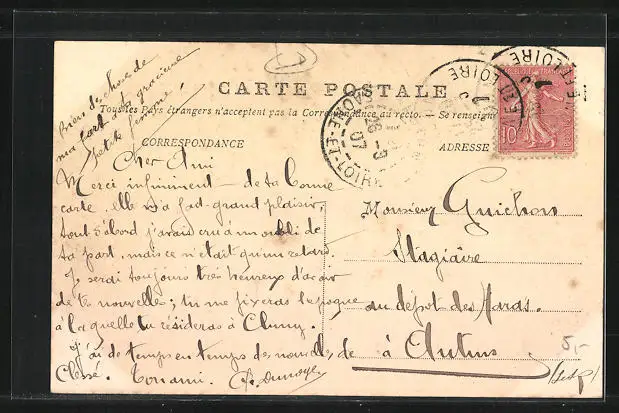 Bien des chose de
ma part à ta gracieuse
petite femme!
CARTE POSTALE
Tous les Pays étrangers n'acceptent pas la Correspondance au recto. — Se renseign
CORRESPONDANCE
ADRESSE
REPUBLIQUE FRANÇAISE
10
SAONE-ET-LOIRE
26-9
07
ET LOIRE
Cher Ami
Merci infiniment de ta bonne
carte, elle m'a fait grand plaisir,
tout d'abord j'avais cru à un oubli de
ta part, mais ce n'était qu'un retard.
Je serai toujours très heureux d'avoir
de tes nouvelles; tu me fixeras l'époque
à laquelle tu résideras à Cluny.
J'ai de temps en temps des nouvelles de
Clessé. Ton ami.
Monsieur Guichon
Stagiaire
au dépôt des Haras.
à Autun
(S et L)
5,-